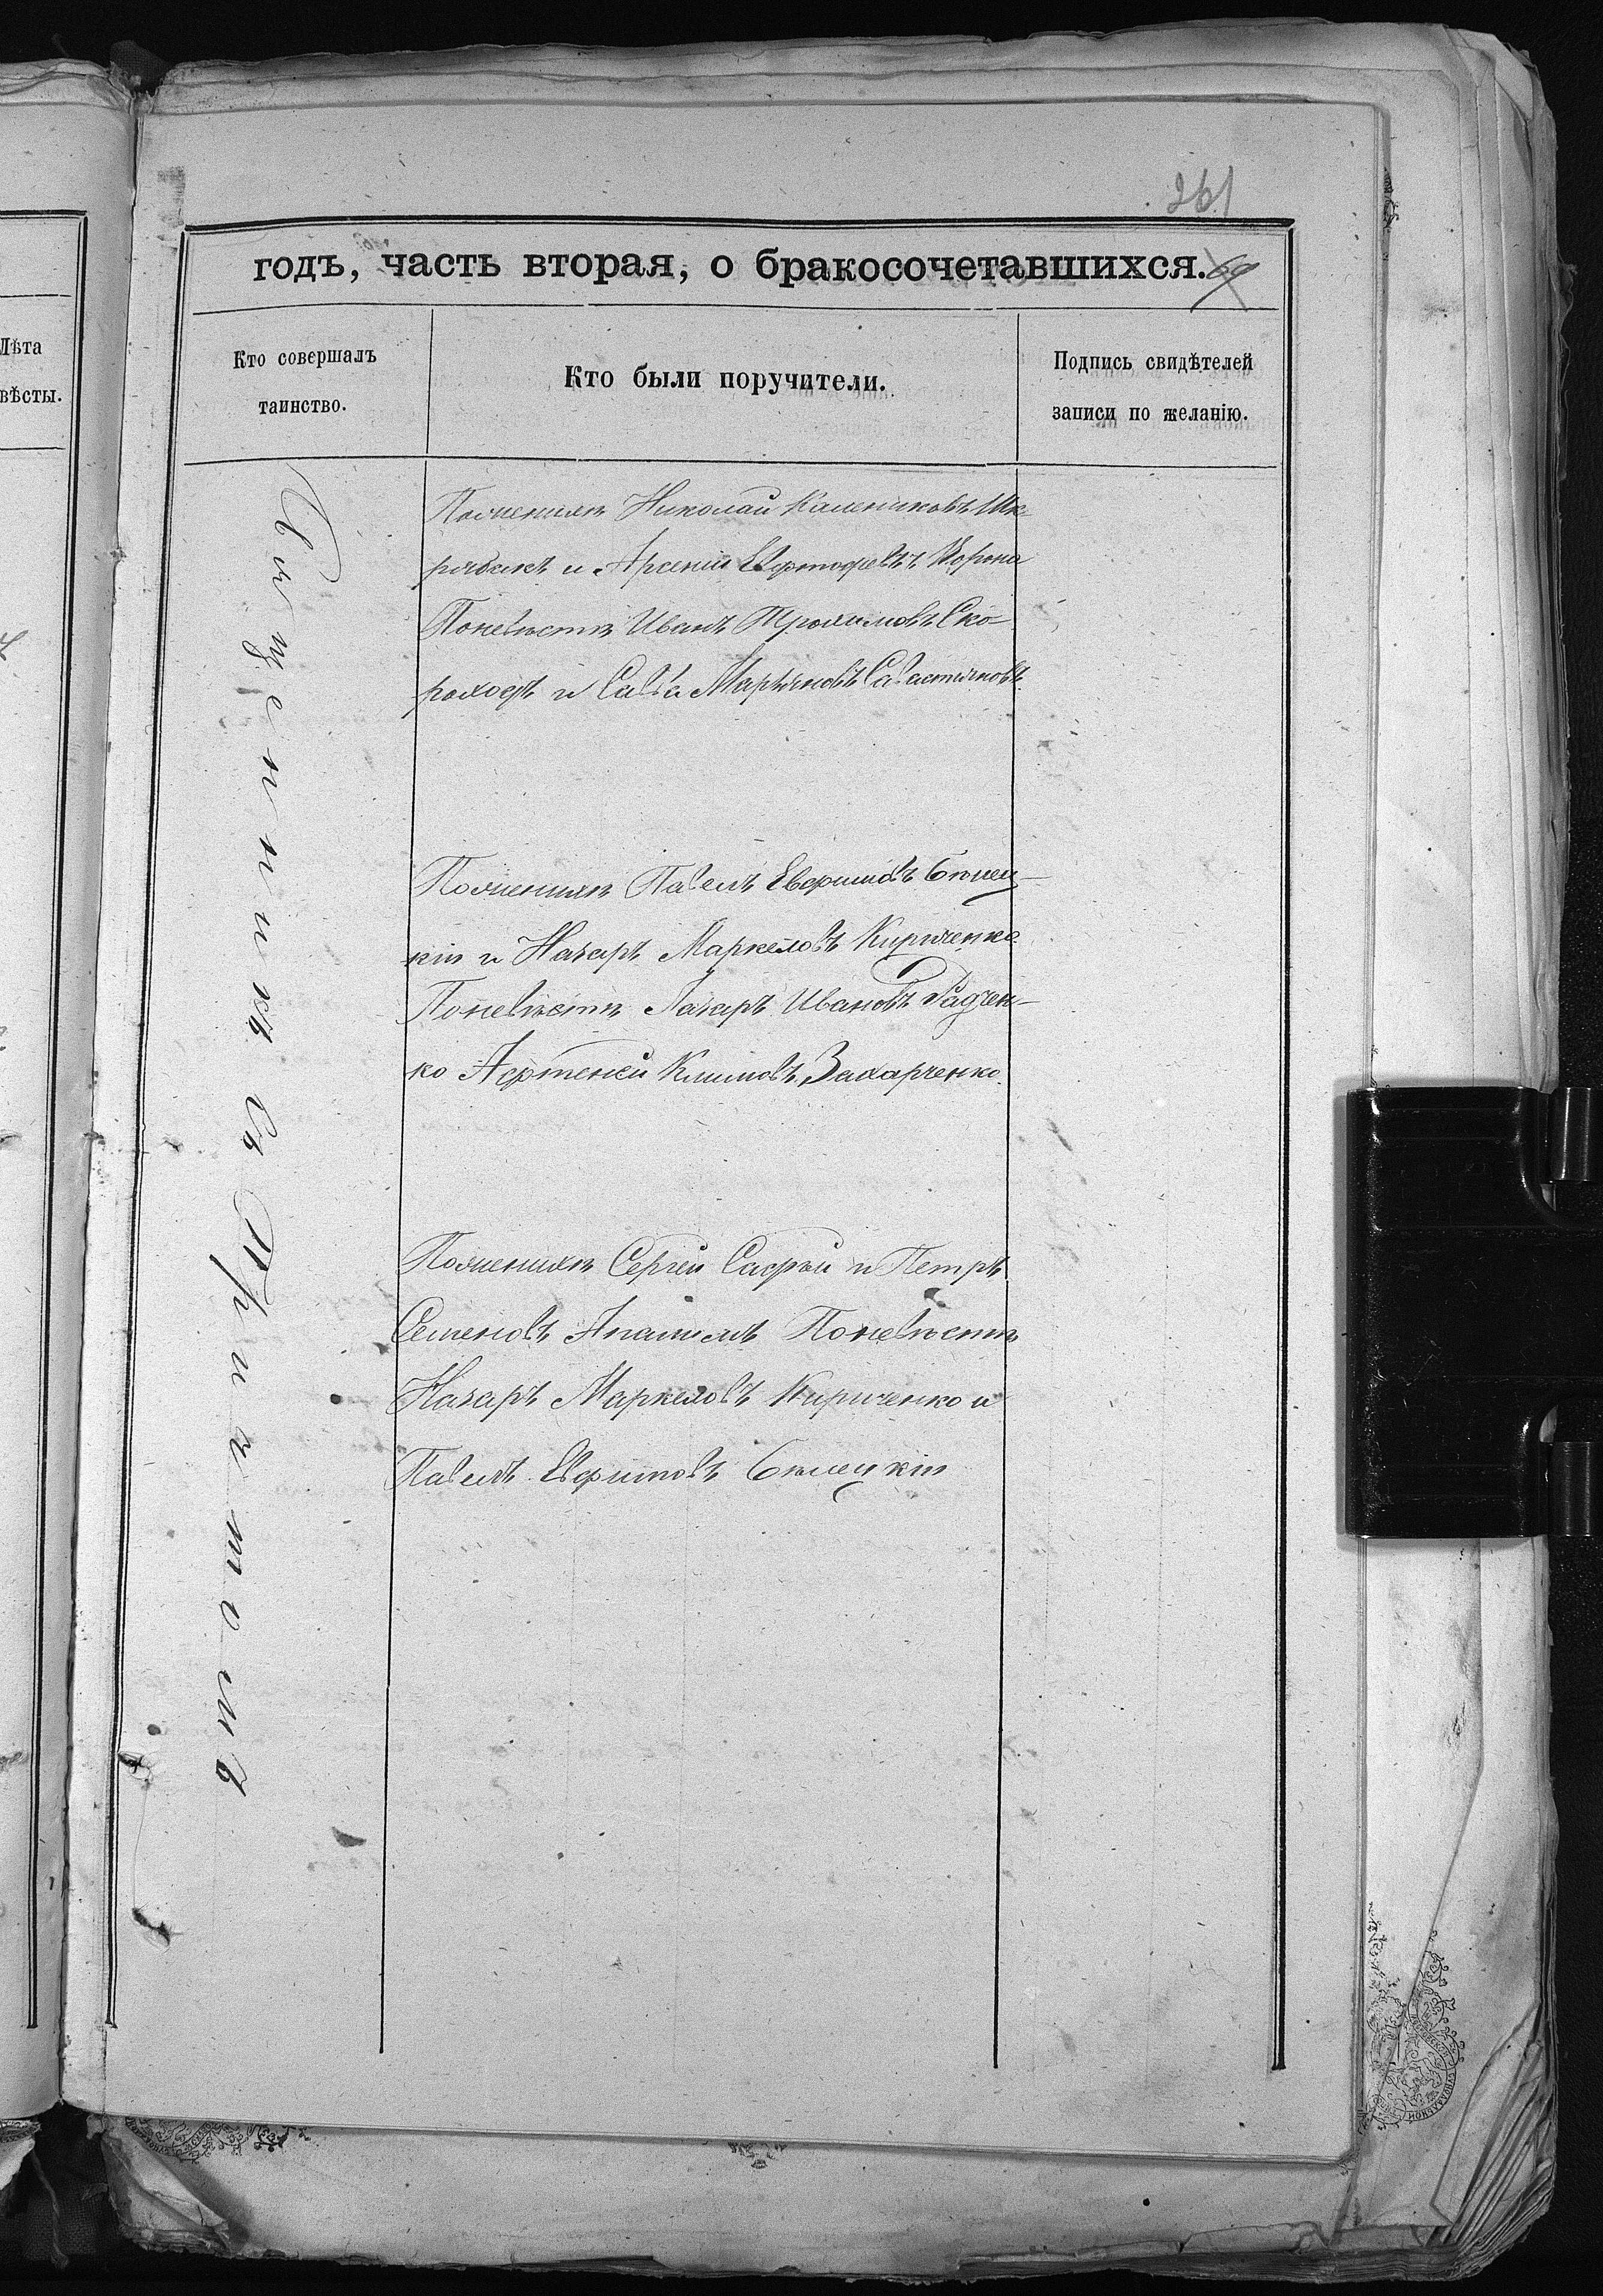 261
годъ, часть вторая, о бракосочетавшихся. 69
Лѣта
вѣсты.
Кто совершалъ
таинство.
Кто были поручители.
Подпись свидѣтелей
записи по желанію.
Священникъ
Пожениxѣ Николай Калениковъ Шк-
рабакъ и Арсеній Корона
Поневѣстѣ Иванъ Трохимовъ Ско
роходъ и Савва Маріяновъ Савастяновъ
Пожениxѣ Павелъ Евфимовъ Бѣлец-
кій и Назаръ Маркеловъ Кириченко
Поневѣстѣ Лазаръ Ивановъ Радчен-
ко Климовъ Захарченко
Пожениxѣ Сергей и Петръ
Семеновъ Поневѣстѣ
Назаръ Маркеловъ Кириченко и
Павелъ Евфимовъ Бѣлецкій